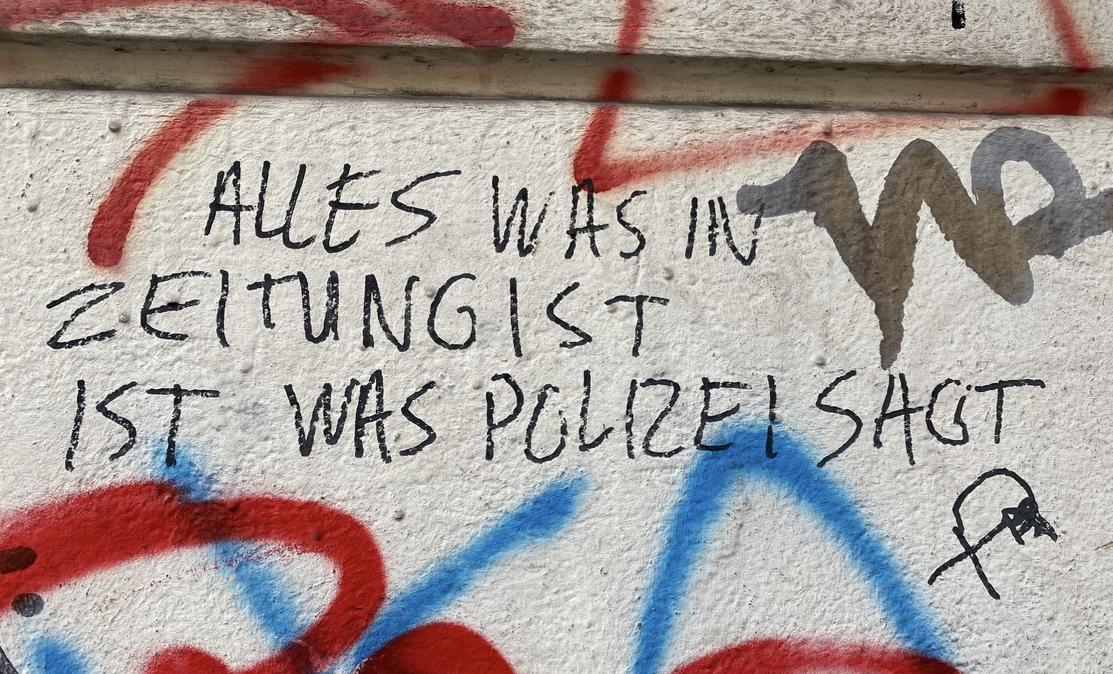 ALLES WAS IN
ZEITUNG IST
IST WAS POLIZEI SAGT